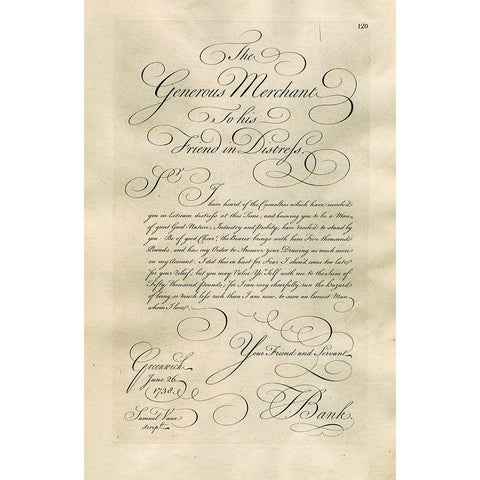 120
The
Generous Merchant
To his
Friend in Distress.
Sr.
I have heard of the Casualties which have involv'd
you in Extream distress at this Time; and knowing you to be a Man
of great Good-Nature, Industry and Probity, have resolv'd to stand by
you. Be of good Chear, the Bearer brings with him Five thousand
Pounds, and has my Order to Answer your Drawing as much more
on my Account. I did this in hast for Fear I should come too late
for your Relief, but you may Value Yo.r Self with me to the Sum of
Fifty thousand pounds; for I can very chearfully run the Hazard
of being so much less rich than I am now, to save an honest Man
whom I love.
Your Friend and Servant
Greenwich
June 26
1738.
F Bank.
Samuel Vaux
scrip.t